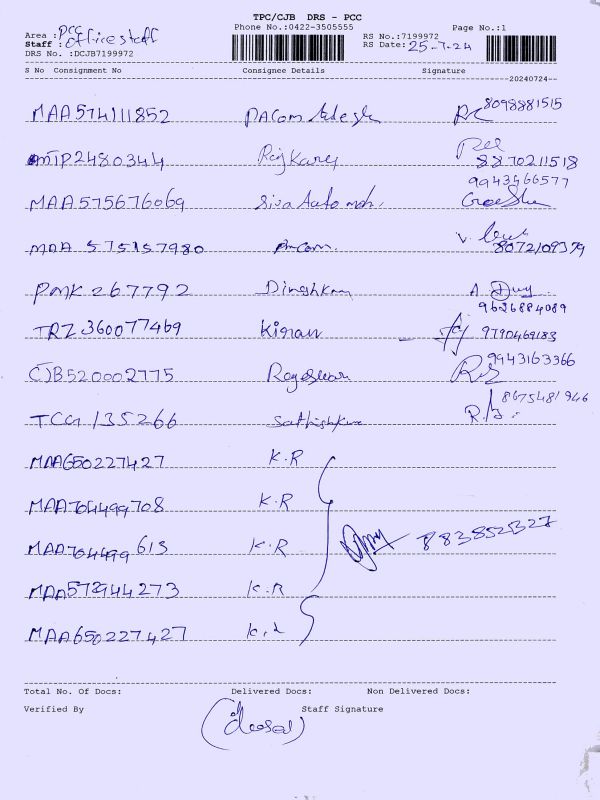 TPC/CJB DRS - PCC
Phone No.:0422-3505555
Page No.:1
Area : PCC
Staff : Office staff
DRS No. :DCJB7199972
RS No.:7199972
RS Date: 25-7-24
S No Consignment No Consignee Details Signature
20240724
MAA574111852 8098881515
MTP2480344 Rajkumar 8870211518
9943466577
MAA575676069 Siva Automoh.
MAA 575157980 8072109379
PMK 267792 Dineshkum
9626884089
TRZ 360077469 Kiran 9790469183
CJB520002775 Rageswar 9943163366
TCG 135266 Sathishkum 8675481946
MAA650227427 K.R
MAA704499708 K.R
MAA704499613 K.R 883852327
MAA572944273 K.R
MAA650227427
Total No. Of Docs: Delivered Docs: Non Delivered Docs:
Verified By Staff Signature